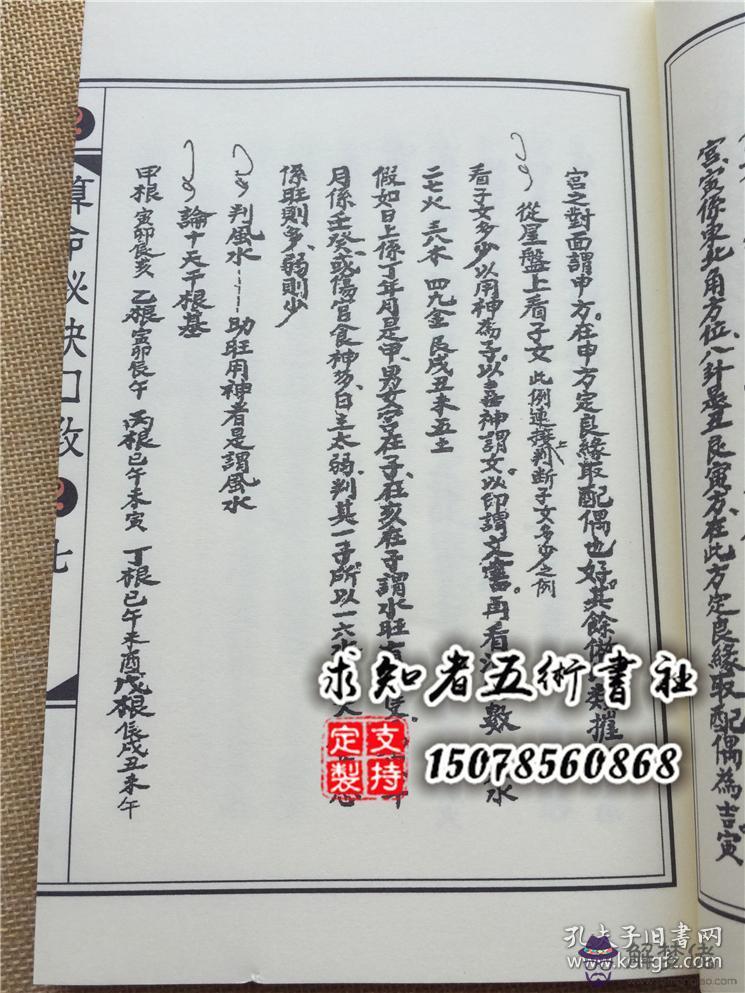 宮之對面謂申方。在申方定良緣取配偶也好。其餘
從星盤上看子女 此例連接上判斷子女多少之例
看子女多少以用神為子。以喜神謂女以印謂文書。再看 數 水
二七火 三八木 四九金 艮戌丑未五土
假如日上係丁年月是甲、男女宮在子、在亥在子謂水旺
月係壬癸、或傷官食神多、日主太弱、判其一子所以一六水
係旺則多、弱則少
判風水 助旺用神者是謂風水
論十天干根基
甲根 寅卯辰亥 乙根 寅卯辰午 丙根 巳午未寅 丁根 巳午未酉 戊根 辰戌丑未午
算命秘訣口教
七
宮、寅係東北角方位、八卦是五艮寅方、在此方定良緣取配偶為吉寅
求知者五術書社
支持
定製
15078560868
孔夫子旧书网
www.kongfz.com
解梦佬